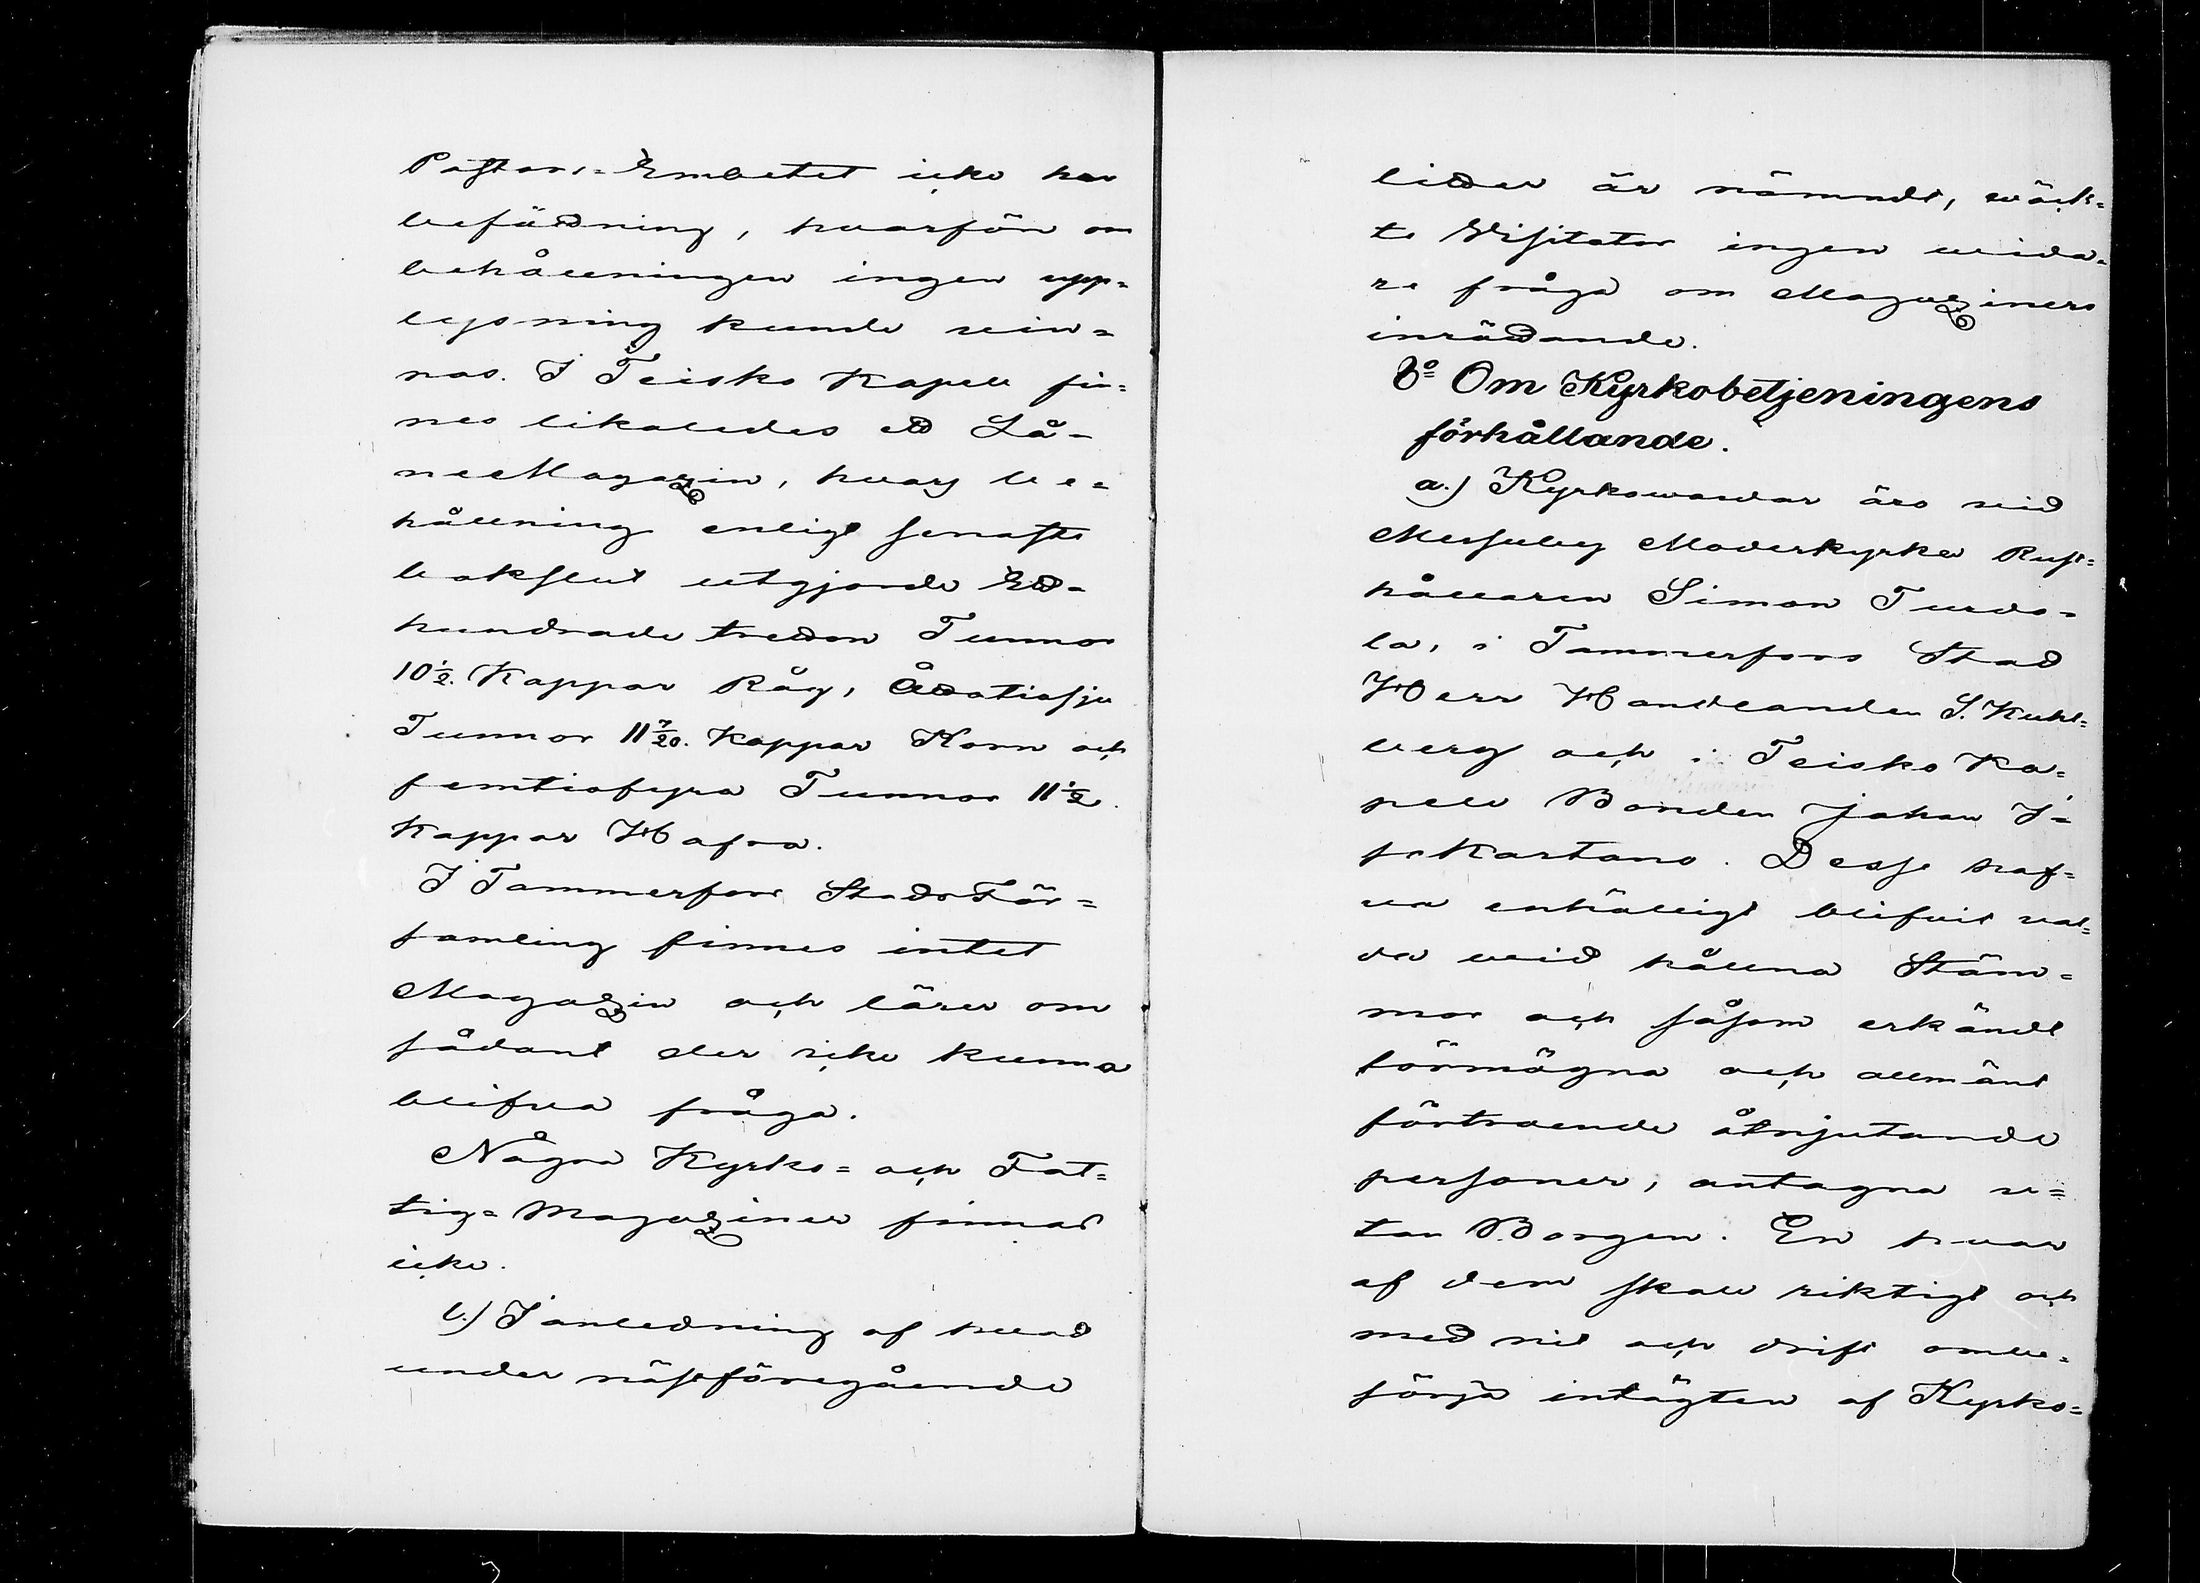 Pastors-Embetet icke har
befattning, hvarför om
behållningen ingen upp-
lysning kunde vin-
nas. I Teisko Kapell fin-
nes likaledes ett Lå-
neMagazin, hvars be-
hållning enligt senaste
bokslut utgjorde Ett-
hundrade tretton Tunnor
10 1/2. Kappar Råg, Åttatiosju
Tunnor 11 7/20. Kappar Korn och
femtiofyra Tunnor 11 1/2.
Kappar Hafra.
I Tammerfors StadsFör-
samling finnes intet
Magazin och lärer om
sådant der icke kunna
blifva fråga.
Några Kyrko- och Fat-
tig-Magaziner finnas
icke.
b.) I anledning af hvad
under nästföregående
litter är nämndt, väck-
te Visitator ingen vida-
re fråga om Magaziners
inrättande.
8o Om Kyrkobetjeningens
förhållande.
a.) Kyrkovärdar äro vid
Messuby Moderkyrka Rust-
hållaren Simon Turdo-
la, i Tammerfors Stad
Herr Handlanden S. Kuhl-
berg och i Teisko Ka-
pell Bonden Johan I-
soKartano. Desse haf-
va enhälligt blifvit val-
da vid hållna Stäm-
mor och såsom erkändt
förmögna och allmänt
förtroende åtnjutande
personer, antagna u-
tan Borgen. En hvar
af dem skall riktigt och
med nit och drift ombe-
sörja intägten af Kyrko-